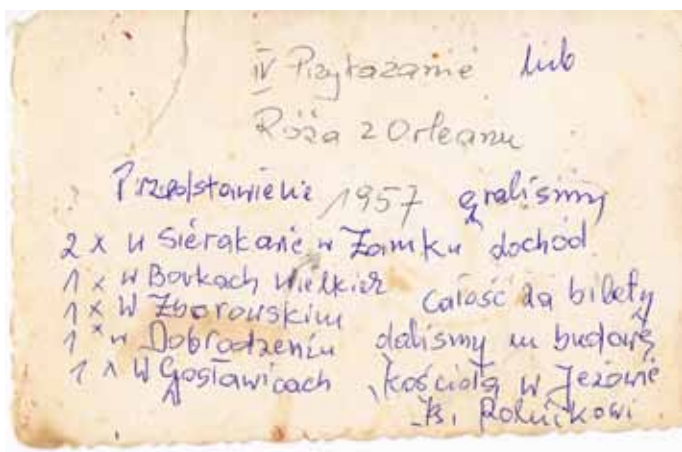 IV Przykazanie lub
Róża z Orleanu
Przedstawienie 1957 graliśmy
2 x w Sierakowie w Zamku dochód
1 x w Borkach Wielkich całość za bilety
1 x w Zborowskim
1 x w Dobrodzeniu daliśmy na budowę
1 x w Gosławicach kościoła w Jeżowie
Ks. Rolnikowi